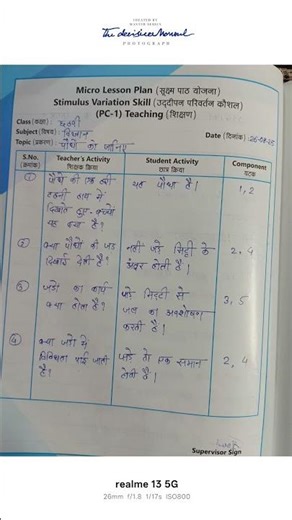 CREATED BY
MASTER DESIGN
PHOTOGRAPH
Micro Lesson Plan (सूक्ष्म पाठ योजना)
Stimulus Variation Skill (उद्दीपन परिवर्तन कौशल)
(PC-1) Teaching (शिक्षण)
Class (कक्षा) :
Subject (विषय) : विज्ञान
Date (दिनांक) :
Topic (प्रकरण)
S.No.
(क्रमांक)
Teacher's Activity
शिक्षक क्रिया
Student Activity
छात्र क्रिया
Component
घटक
①
पौधों की एक
टहनी हाथ में
यह क्या है?
यह पौधा है।
1, 2
②
क्या पौधों की जड़
दिखाई देती है?
नहीं जड़े मिट्टी के
अंदर होती है।
2, 4
③
जड़ों का कार्य
क्या होता है?
जड़े मिट्टी से
जल का अवशोषण
करती है।
3, 5
④
क्या जड़ो में
पाई जाती
है?
जड़े तो एक समान
होती है।
2, 4
Supervisor Sign
realme 13 5G
26mm f/1.8 1/17s ISO800